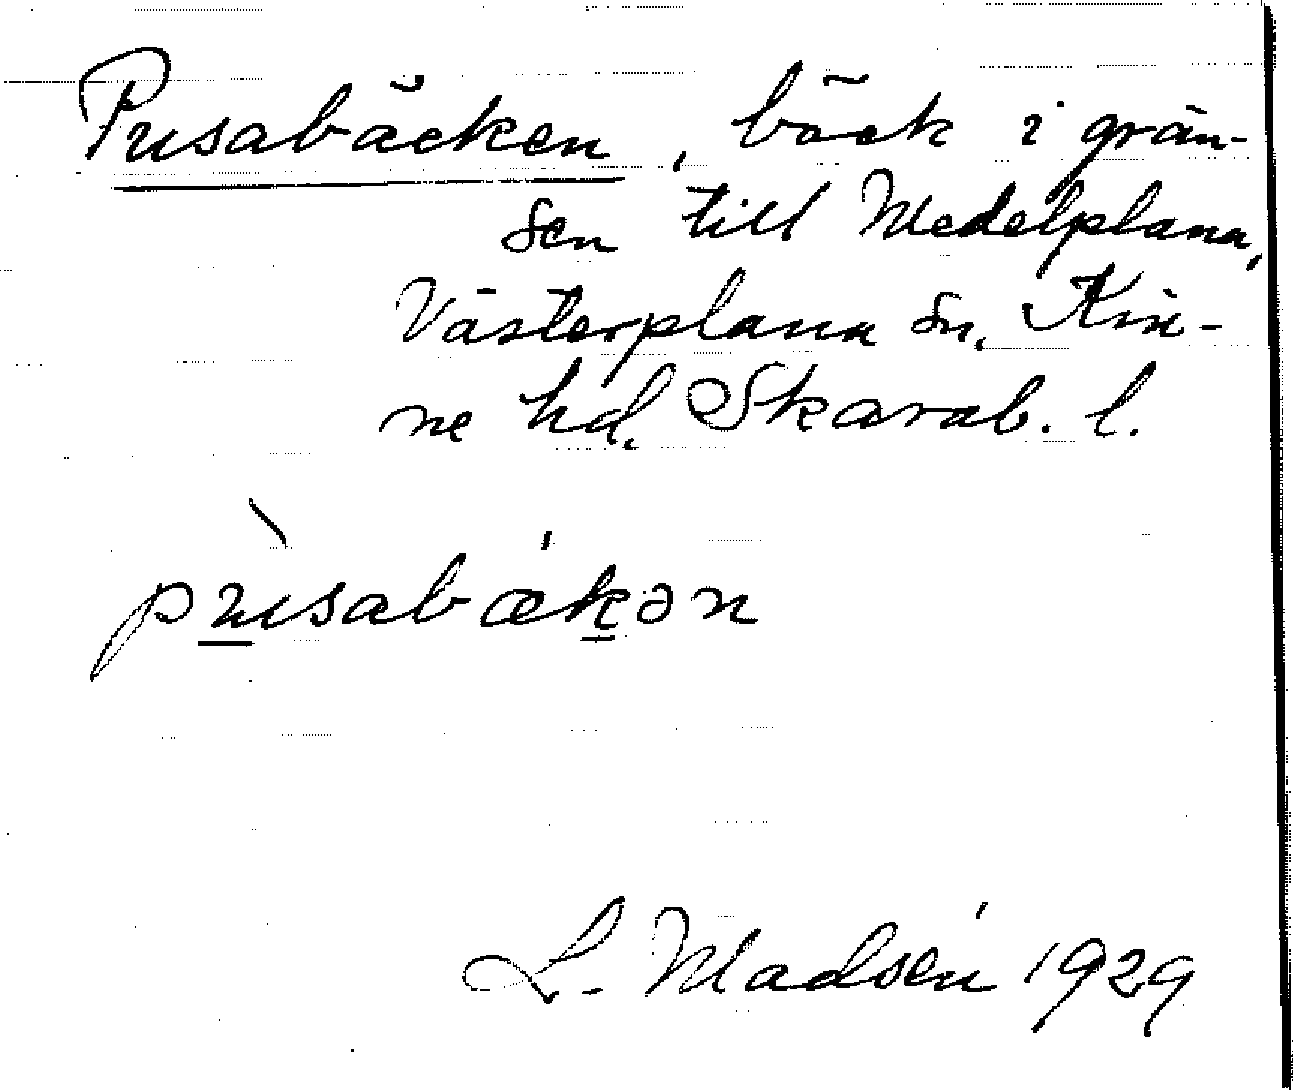 Pusabäcken, bäck i grän-
sen till Medelplana,
Västerplana sn, Kin-
ne hd, Skarab. l.
pùsabǽkən
L. Madsén 1929